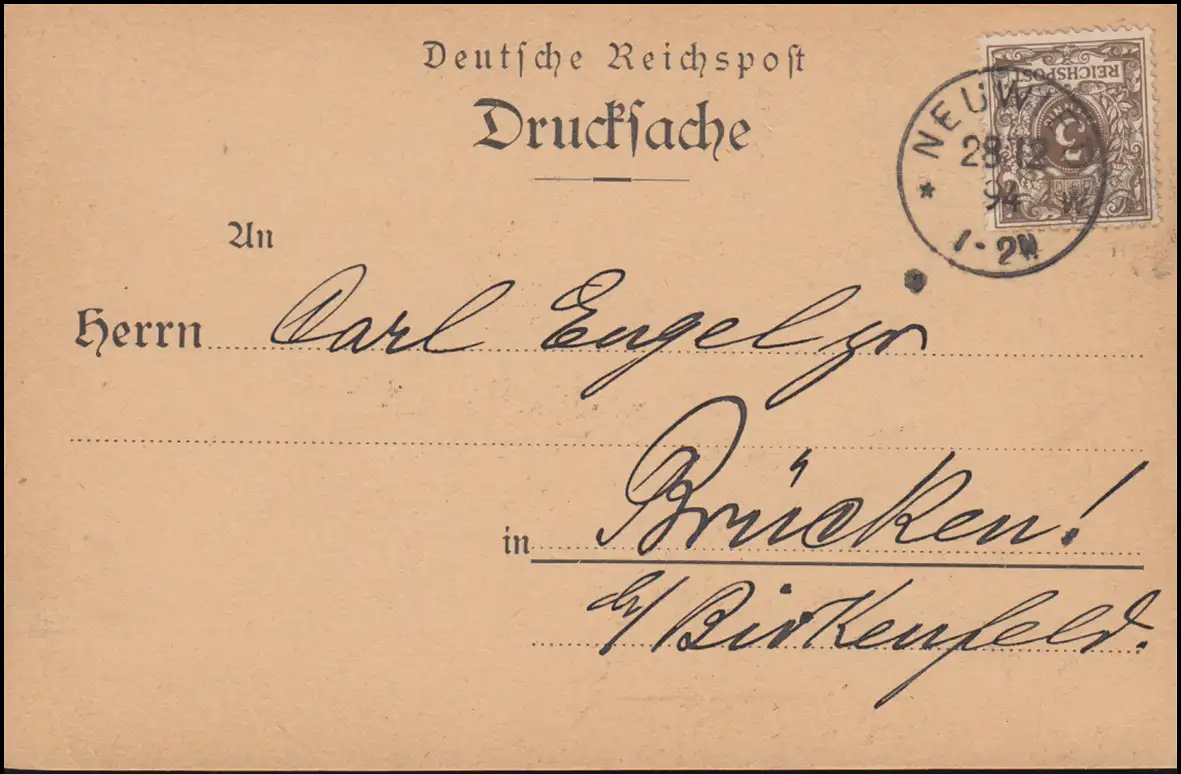 Deutsche Reichspost
Drucksache
REICHSPOST
3
NEUW
28 12
94
W
1-2N
An
Herrn Carl Engel jr
in Brücken!
b/ Birkenfeld.